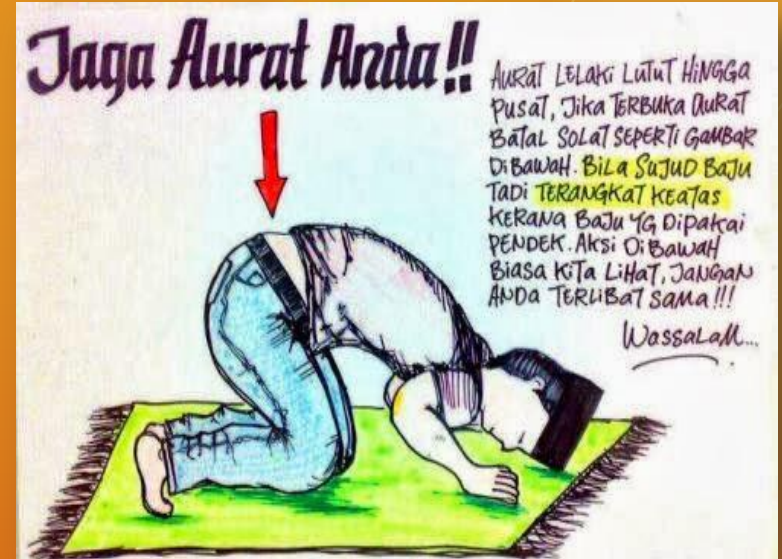 Jaga Aurat Anda!!
AURAT LELAKI LUTUT HINGGA
PUSAT, JIKA TERBUKA AURAT
BATAL SOLAT SEPERTI GAMBAR
DIBAWAH. BILA SUJUD BAJU
TADI TERANGKAT KEATAS
KERANA BAJU YG DIPAKAI
PENDEK. AKSI DIBAWAH
BIASA KITA LIHAT, JANGAN
ANDA TERLIBAT SAMA!!!
WASSALAM...